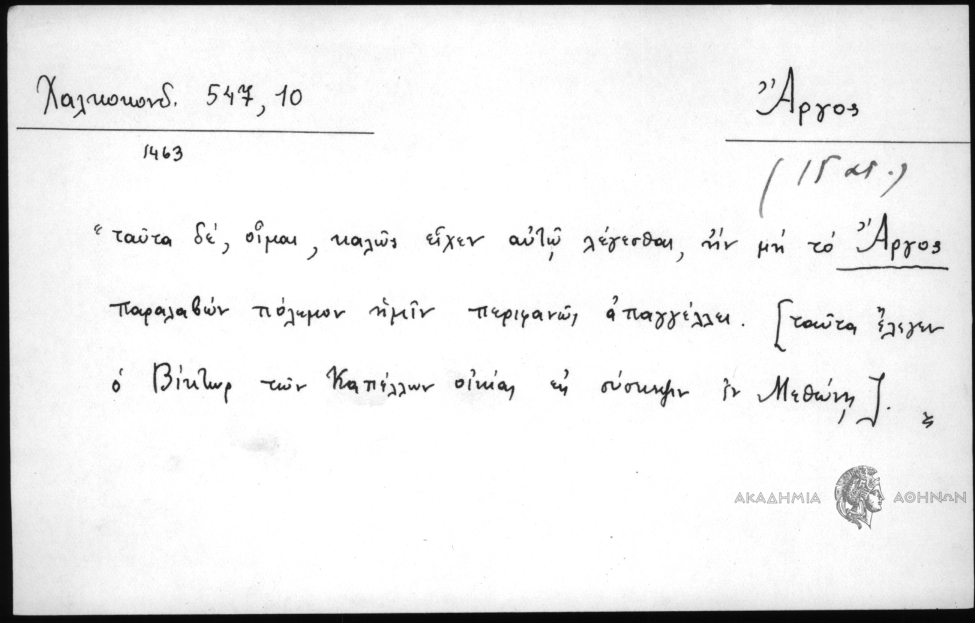 Χαλκοκονδ. 547, 10
Ἄργος
1463
(15 αι.)
“ταῦτα δέ, οἶμαι, καλῶς εἶχεν αὐτῷ λέγεσθαι, ἢν μὴ τό Ἄργος
παραλαβών πόλεμον ἡμῖν περιφανῶς ἀπαγγέλλει. [ταῦτα ἔλεγεν
ὁ Βίκτωρ τῶν Καπέλλων οἰκίας εἰς σύσκεψιν ἐν Μεθώνῃ].”
ΑΚΑΔΗΜΙΑ ΑΘΗΝΩΝ